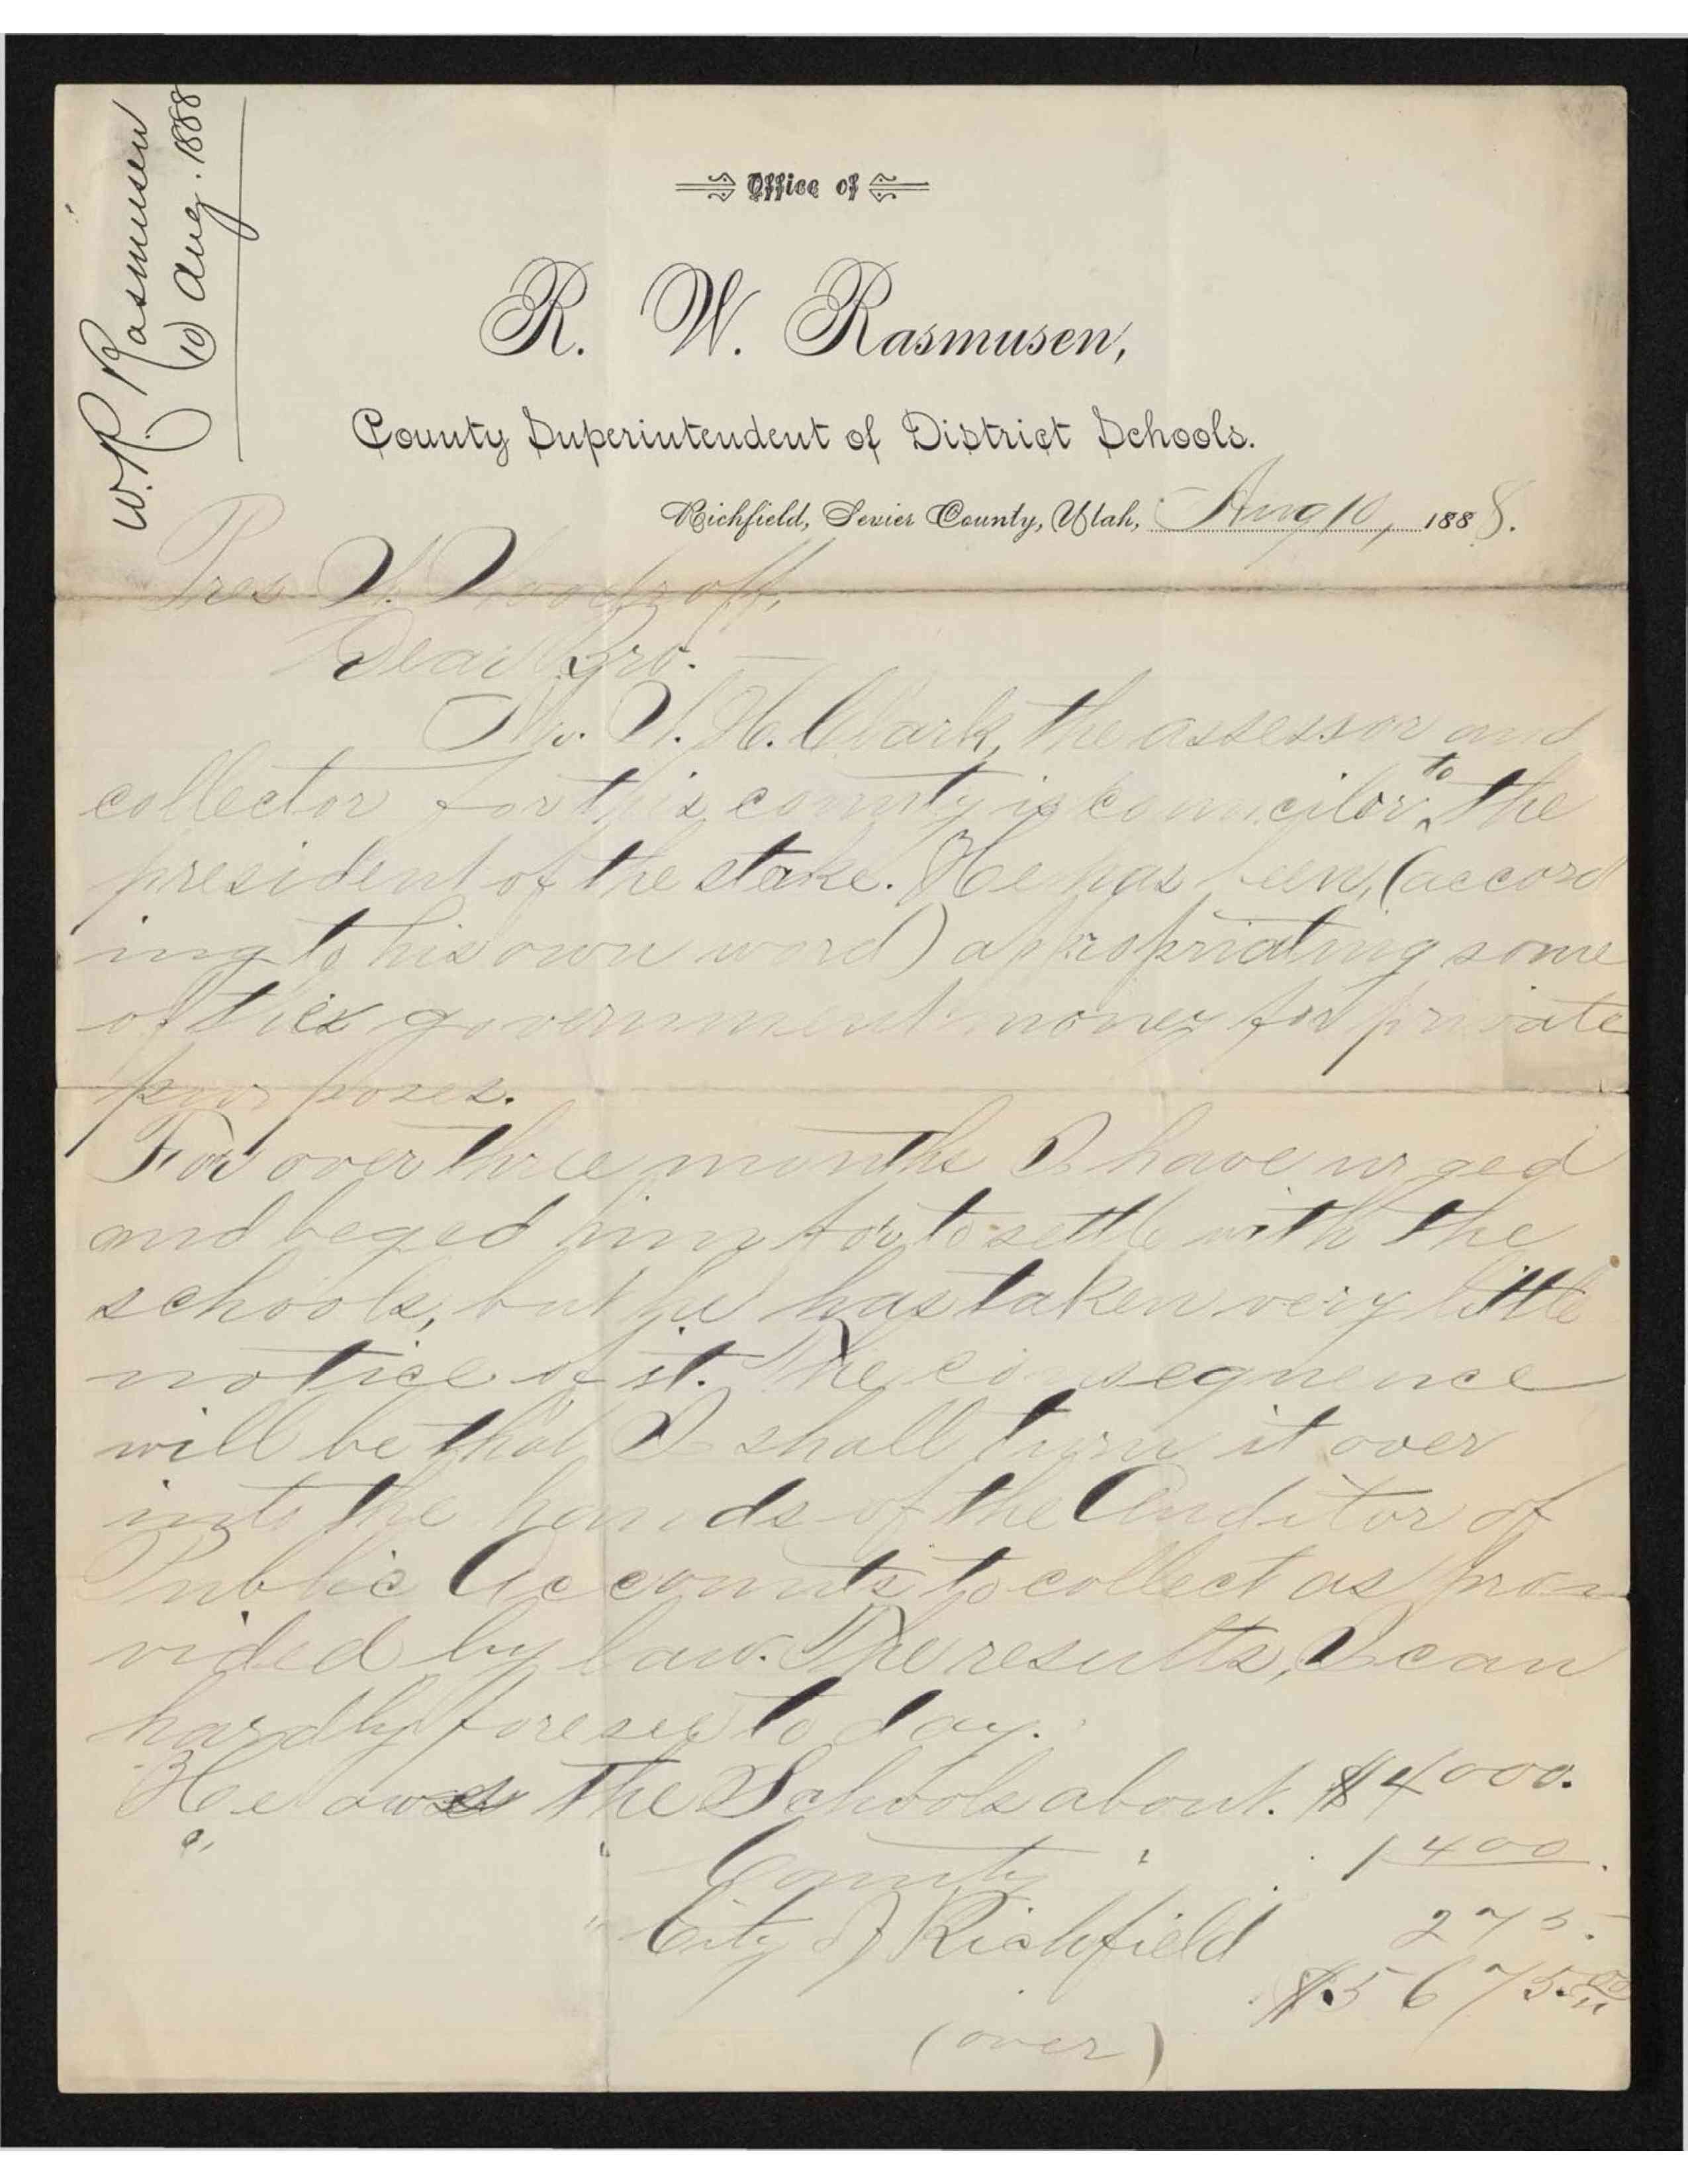 W. R. Rasmusen
10 Aug. 1888
Office of
R. W. Rasmusen,
County Superintendent of District Schools.
Richfield, Sevier County, Utah, Aug 10, 1888.
Pres W. Woodroff,
Dear Bro.
Mr. W. H. Clark, the assessor and
collector for this county is councilor to the
president of the stake. He has been, (accord
ing to his own word) appropriating some
of the government money for private
purposes.
For over three months I have urged
and beged him for to settle with the
schools, but he has taken very little
notice of it. The consequence
will be that I shall turn it over
into the hands of the Auditor of
Public Accounts to collect as pro-
vided by law. The results, I can
hardly foresee to day.
He owes the Schools about. $4000.
" " County " 1400.
" City of Richfield 275.
$5675.00
(over)